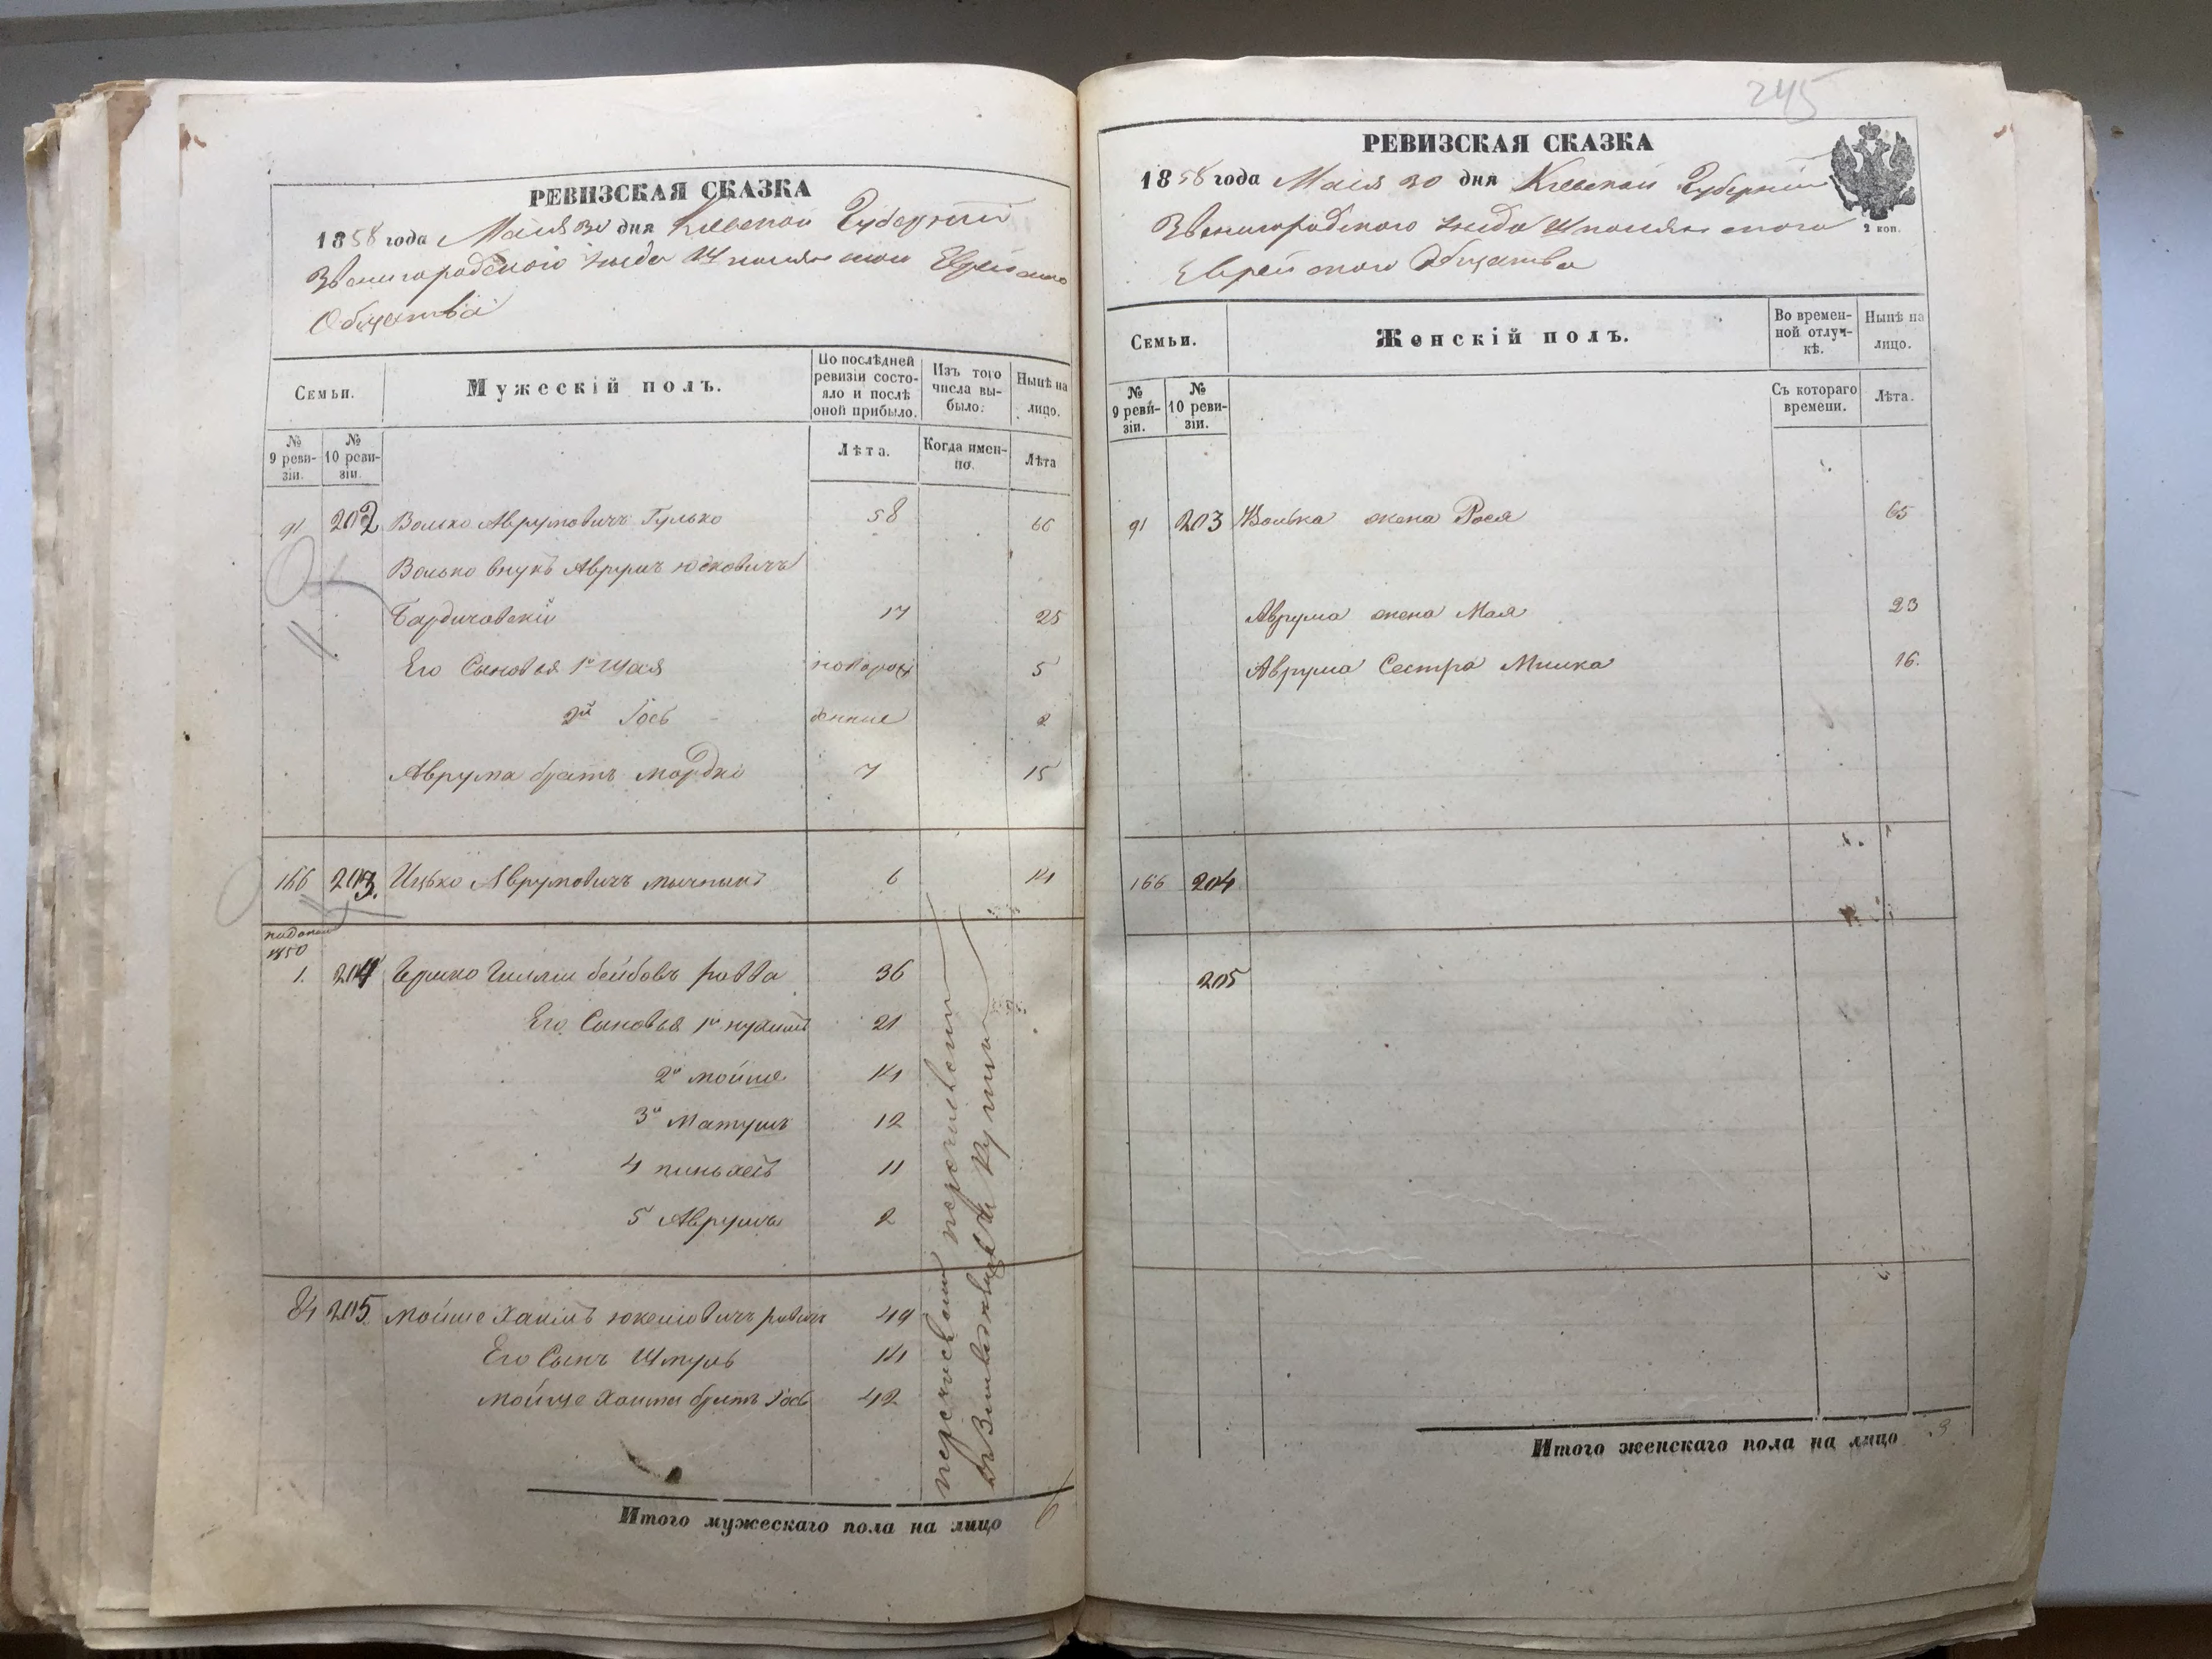 РЕВИЗСКАЯ СКАЗКА
1858 года Маія 30 дня Кіевской Губерніи
Звенигородскаго уезда Шполянскаго Еврейскаго
Общества
Семьи.
Мужескій полъ.
По послѣдней ревизіи состояло и послѣ оной прибыло.
Изъ того числа выбыло.
Нынѣ на лицо.
№ 9 ревизіи.
№ 10 ревизіи.
Лѣта.
Когда именно.
Лѣта
91 202 Волько Аврумовичъ Гулько 58 66
Волько внукъ Аврумъ Юсковичъ
Бардичовскій 17 25
Его Сыновья 1й Шая новорож 5
2й Іось денные 2
Аврума братъ Мордко 7 15
166 203. Ицько Аврумовичъ 6 14
1850
1. 204 36
Его Сыновья 1й 21
2й Мойше 14
3й Матушъ 12
4 Пиньхасъ 11
5 Аврумъ 2
84 205. Мойше Хаимъ 49
Его Сынъ Шмуль 14
Мойше Хаима братъ Іось 42
перечислены
Итого мужескаго пола на лицо 6
245
РЕВИЗСКАЯ СКАЗКА
1858 года Маія 30 дня Кіевской Губерніи
Звенигородскаго уезда Шполянскаго
2 коп.
Еврейскаго Общества
Семьи.
Женскій полъ.
Во временной отлучкѣ.
Нынѣ на лицо.
№ 9 ревизіи.
№ 10 ревизіи.
Съ котораго времени.
Лѣта.
91 203 Волька жена Рося 65
Аврума жена Мая 23
Аврума Сестра Милка 16.
166 204
205
Итого женскаго пола на лицо 3